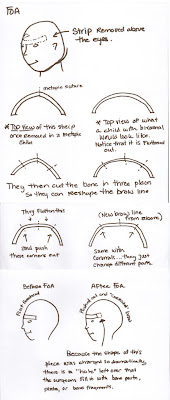 FOA
Strip Removed above
the eyes.
metopic suture
* Top view of the strip
once removed in a metopic
child
* Top view of what
a child with bicoronal
would look like.
Notice that it is flattened
out.
They then cut the bone in three places
so they can reshape the brow line
They flatten this
and push
these corners out
(New brow line
from above)
Same with
coronals... they just
change different parts.
Before FOA
After FOA
Flat forehead
Because the shape of this
piece was changed so dramatically,
there is a "hole" left over that
the surgeons fill in with bone paste,
plate, or bone fragments.